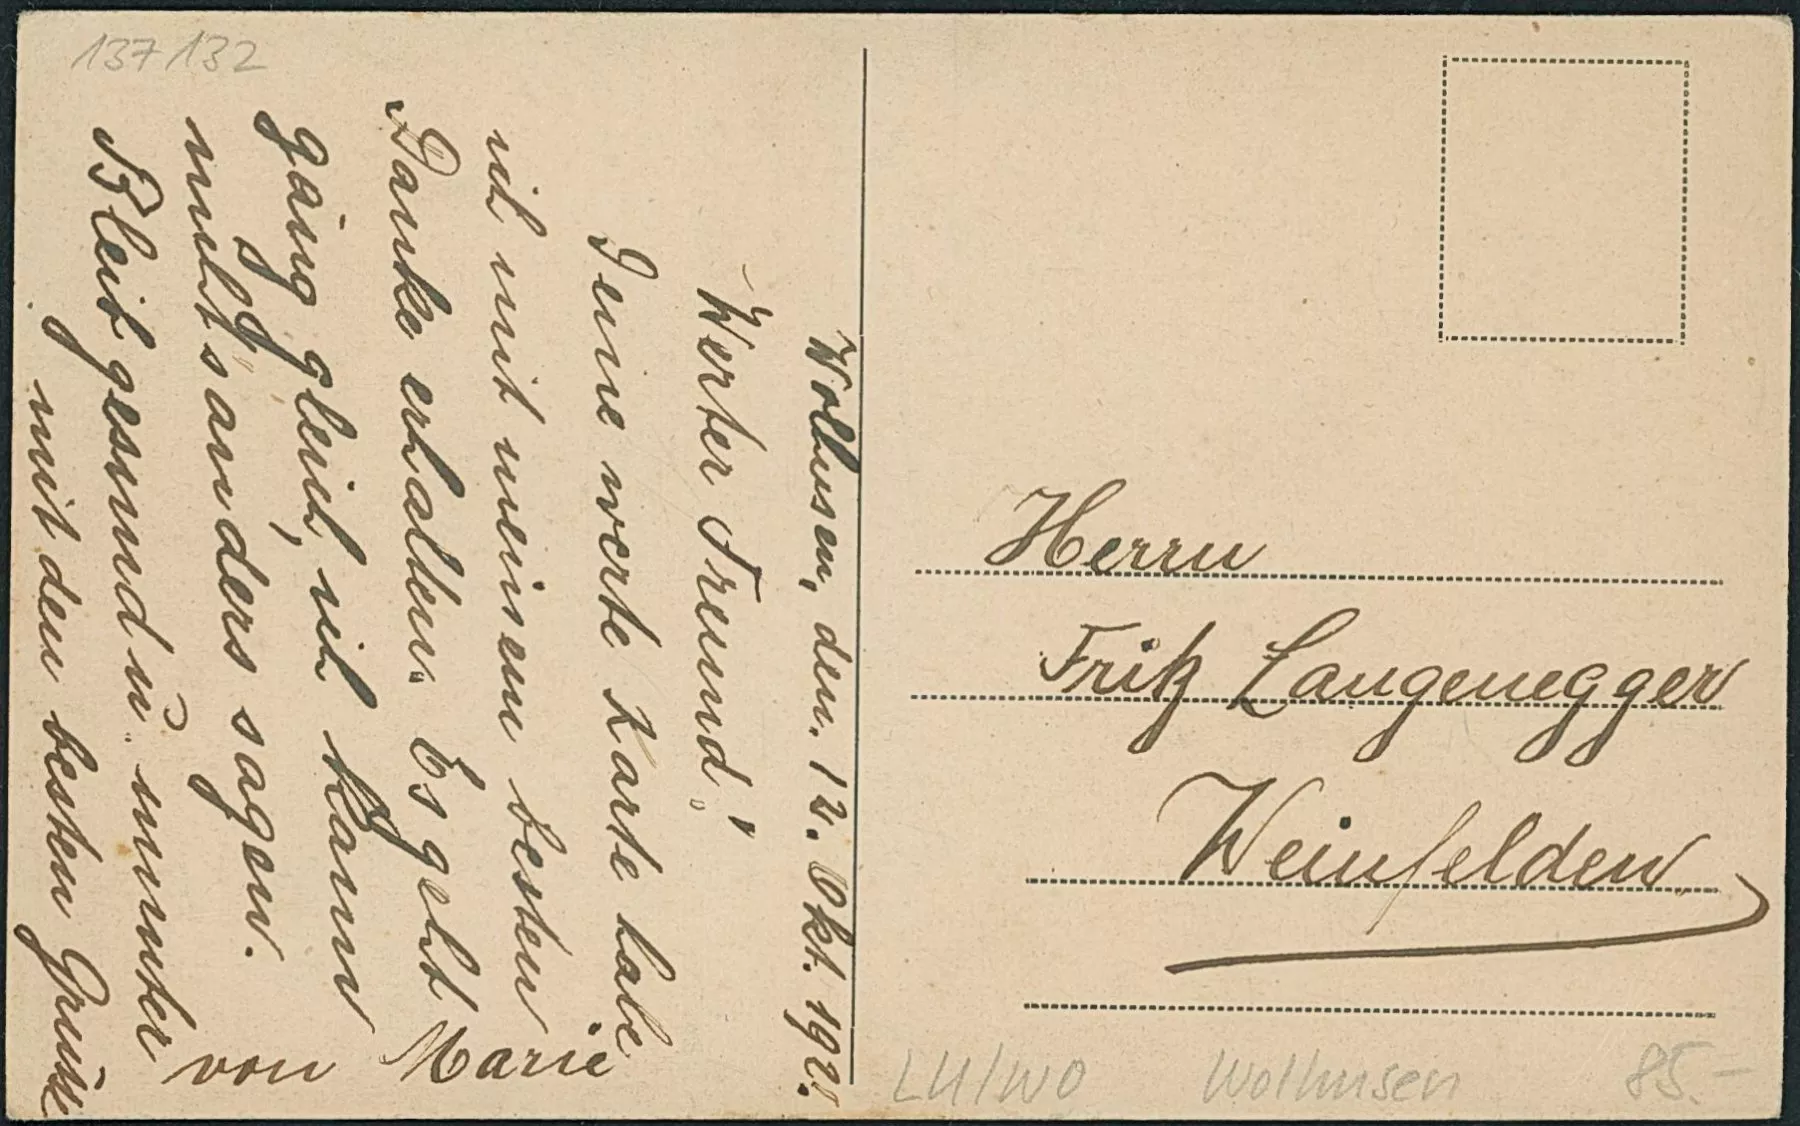 137132
Wolhusen, den. 12. Okt. 192
Werter Freund!
Deine werte Karte habe
ich mit meinem besten
Danke erhalten. Es geht
gäng gleich, ich kann
nicht anders sagen.
Bleib gesund u. munter
mit den besten Grüßen
von Marie
Herrn
Fritz Langenegger
Weinfelden
LU/WO Wolhusen 85.-